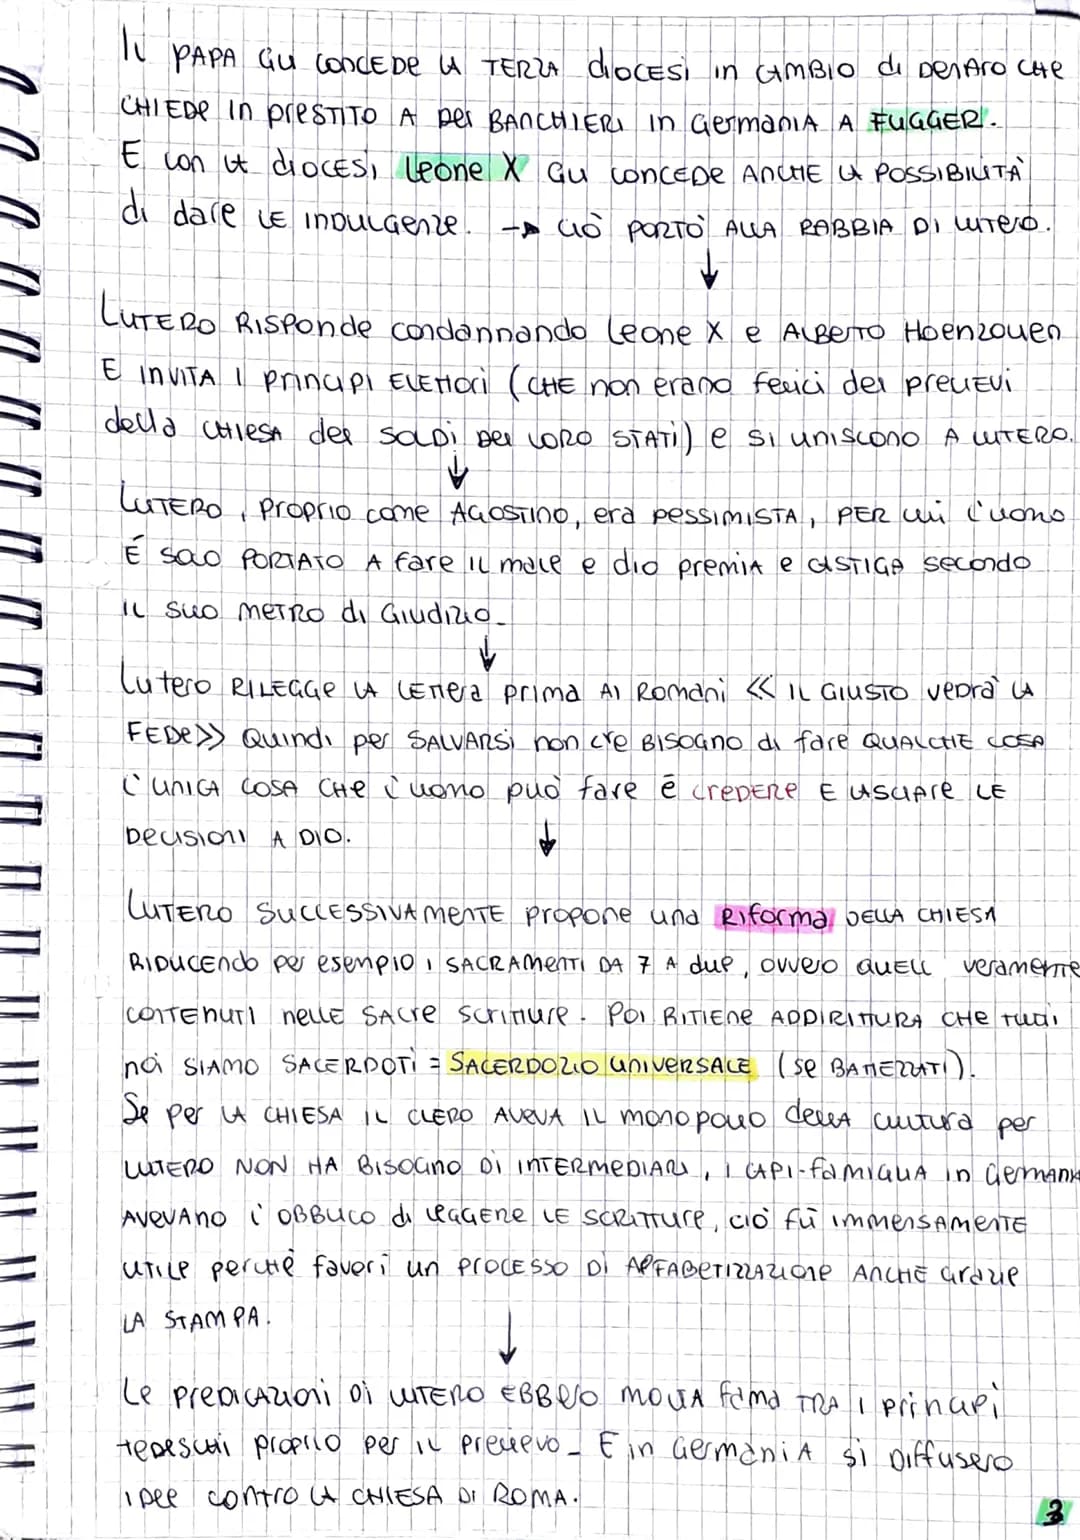 Il PAPA GLI CONCEDE LA TERZA diocesi in CAMBIO di DENARO CHE
CHIEDE In PRESTITO A Dei BANCHIERI In GermaniA A FUGGER.
E con LA diocesi Leone X GLI CONCEDE ANCHE LA POSSIBILITÀ
di dare LE INDULGENZE. → CIÒ PORTÒ ALLA RABBIA DI LUTERO.
↓
LUTERO RISPonde condannando Leone X e ALBERTO HOENZOLLEN
E INVITA I principi ELETTORI (CHE non erano felici dei PRELIEVI
della CHIESA dei SOLDI DEI LORO STATI) e SI UNISCONO A LUTERO.
↓
LUTERO, PROPRIO come AGOSTINO, era pessimISTA, PER LUI l'uomo
É SOLO PORTATO A fare IL male e dio premiA e CASTIGA secondo
IL SUO METRO di GIUDIZIO.
↓
Lutero RILEGGE LA LETTERA prima AI Romani << IL GIUSTO vedrà LA
FEDE>> Quindi per SALVARSI non c'è BISOGNO di fare QUALCHE COSA
L'UNICA COSA CHE l'uomo può fare è CREDERE E LASCIARE LE
DECISIONI A DIO.
↓
LUTERO SUCCESSIVAMENTE propone una Riforma DELLA CHIESA
RIDUCENDO per esempio I SACRAMENTI DA 7 A due, ovvero quelli veramente
CONTENUTI nelle SACRE SCRITTURE. POI RITIENE ADDIRITTURA CHE TUTTI
noi SIAMO SACERDOTI = SACERDOZIO UNIVERSALE (se BATTEZZATI).
Se per LA CHIESA IL CLERO AVEVA IL monopolio della cultura per
LUTERO NON HA BISOGNO DI INTERMEDIARI, I CAPI-famiglia in GermaniA
AVEVANO l'OBBLICO di LEGGERE LE SCRITTURE, ciò fu IMMENSAMENTE
UTILE perchè favorì un PROCESSO DI ALFABETIZZAZIONE ANCHE GRAZIE
LA STAMPA.
↓
Le PREDICAZIONI DI LUTERO EBBERO MOLTA fama TRA I principi
TEDESCHI PROPRIO per IL PRELIEVO. E in GermaniA si Diffusero
IDEE CONTRO LA CHIESA DI ROMA.
3